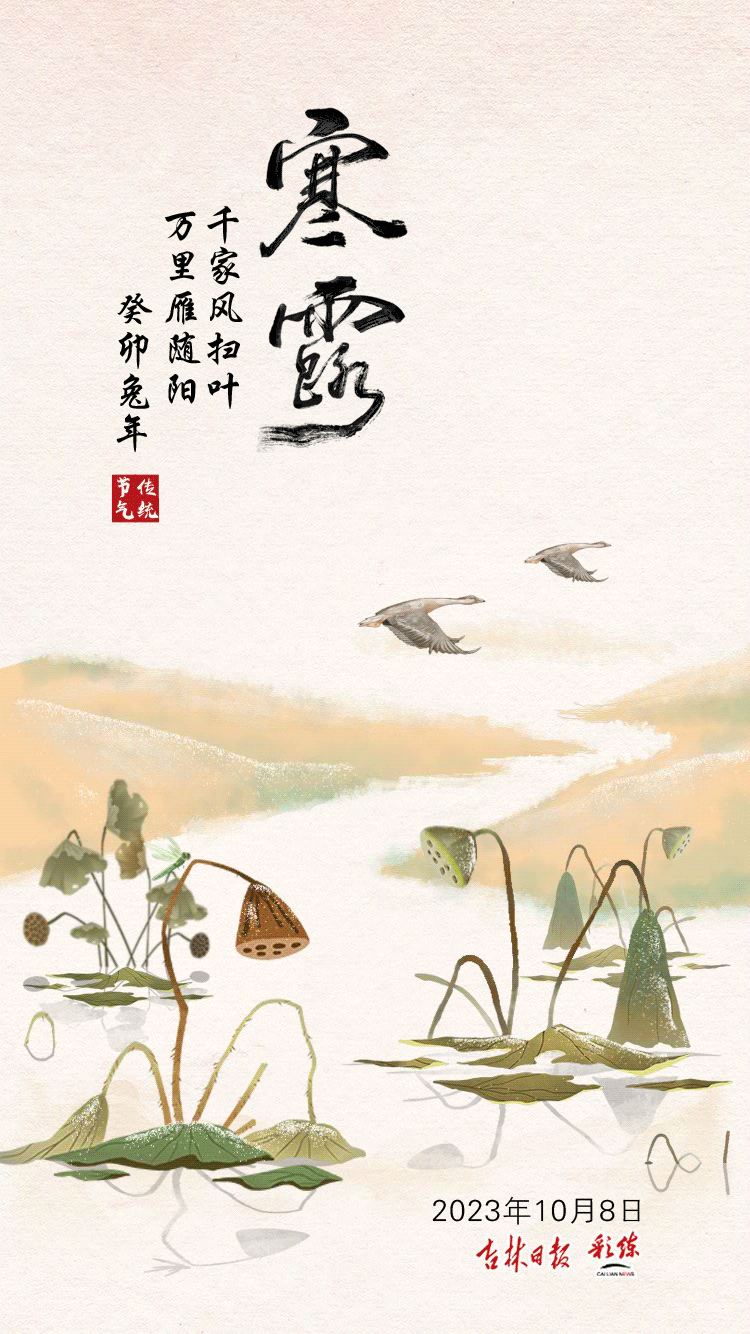 寒露
千家风扫叶
万里雁随阳
癸卯兔年
传统
节气
2023年10月8日
吉林日报 彩练
CAILIAN NEWS